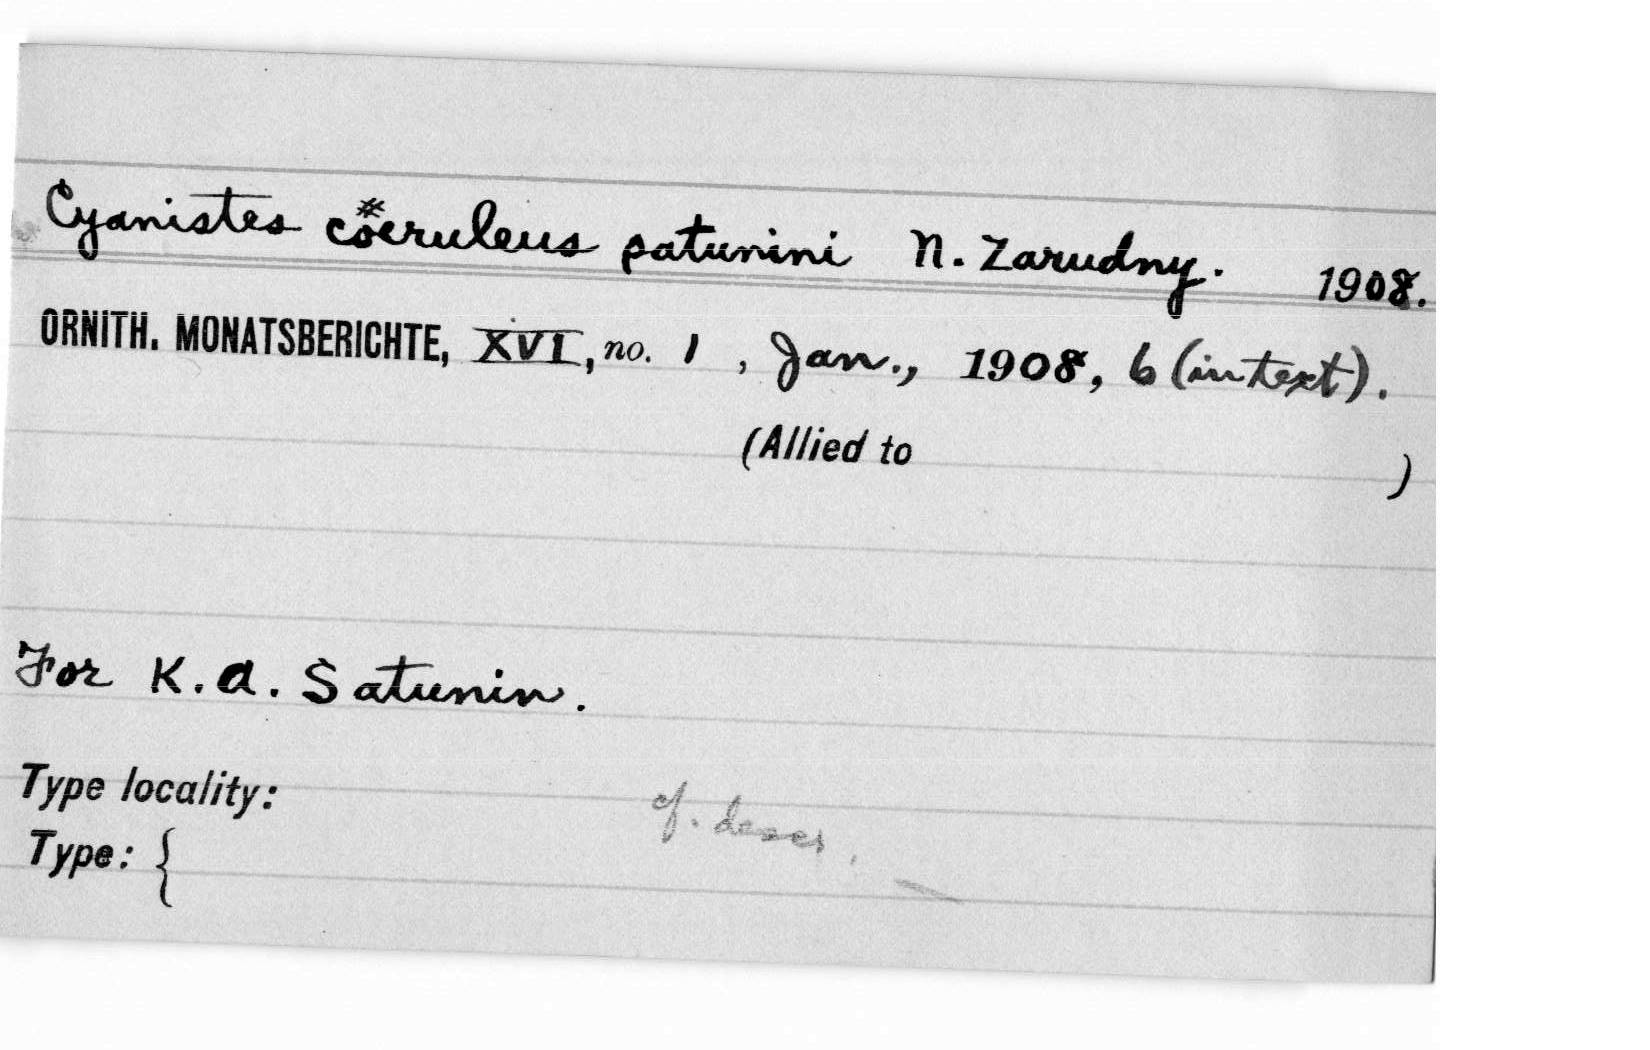 Cyanistes coeruleus patunini N. Zarudny. 1908.
ORNITH. MONATSBERICHTE, XVI, no. 1, Jan., 1908, 6 (in text).
(Allied to )
For K. A. Satunin.
Type locality:
cf. descr.
Type: {